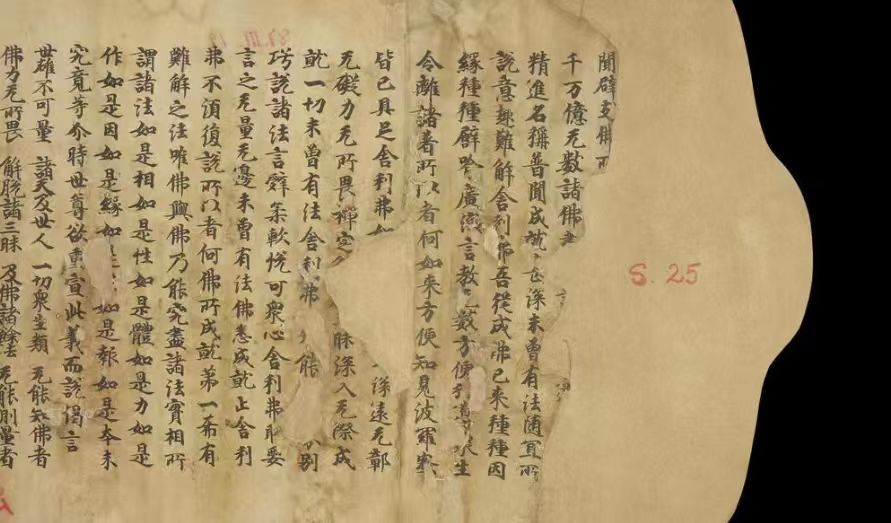 聞辟支佛所
千万億无數諸佛
精進名稱普聞成就甚深未曾有法随冝所
說意趣難解舍利弗吾從成佛已来種種因
緣種種譬喻廣演言教數方便引導衆生
令離諸著所以者何如来方便知見波羅蜜
皆已具足舍利弗如深遠无鄣
无礙力无所畏禪定昧深入无際成
就一切未曾有法舍利弗能別
巧說諸法言辭柔軟悅可衆心舍利弗取要
言之无量无邊未曾有法佛悉成就止舍利
弗不湏復說所以者何佛所成就第一希有
難解之法唯佛與佛乃能究盡諸法實相所
謂諸法如是相如是性如是體如是力如是
作如是因如是緣如是如是報如是本末
究竟等尒時世尊欲重宣此義而說偈言
世雄不可量 諸天及世人 一切衆生類 无能知佛者
佛力无所畏 解脫諸三昧 及佛諸餘法 无能測量者
S. 25